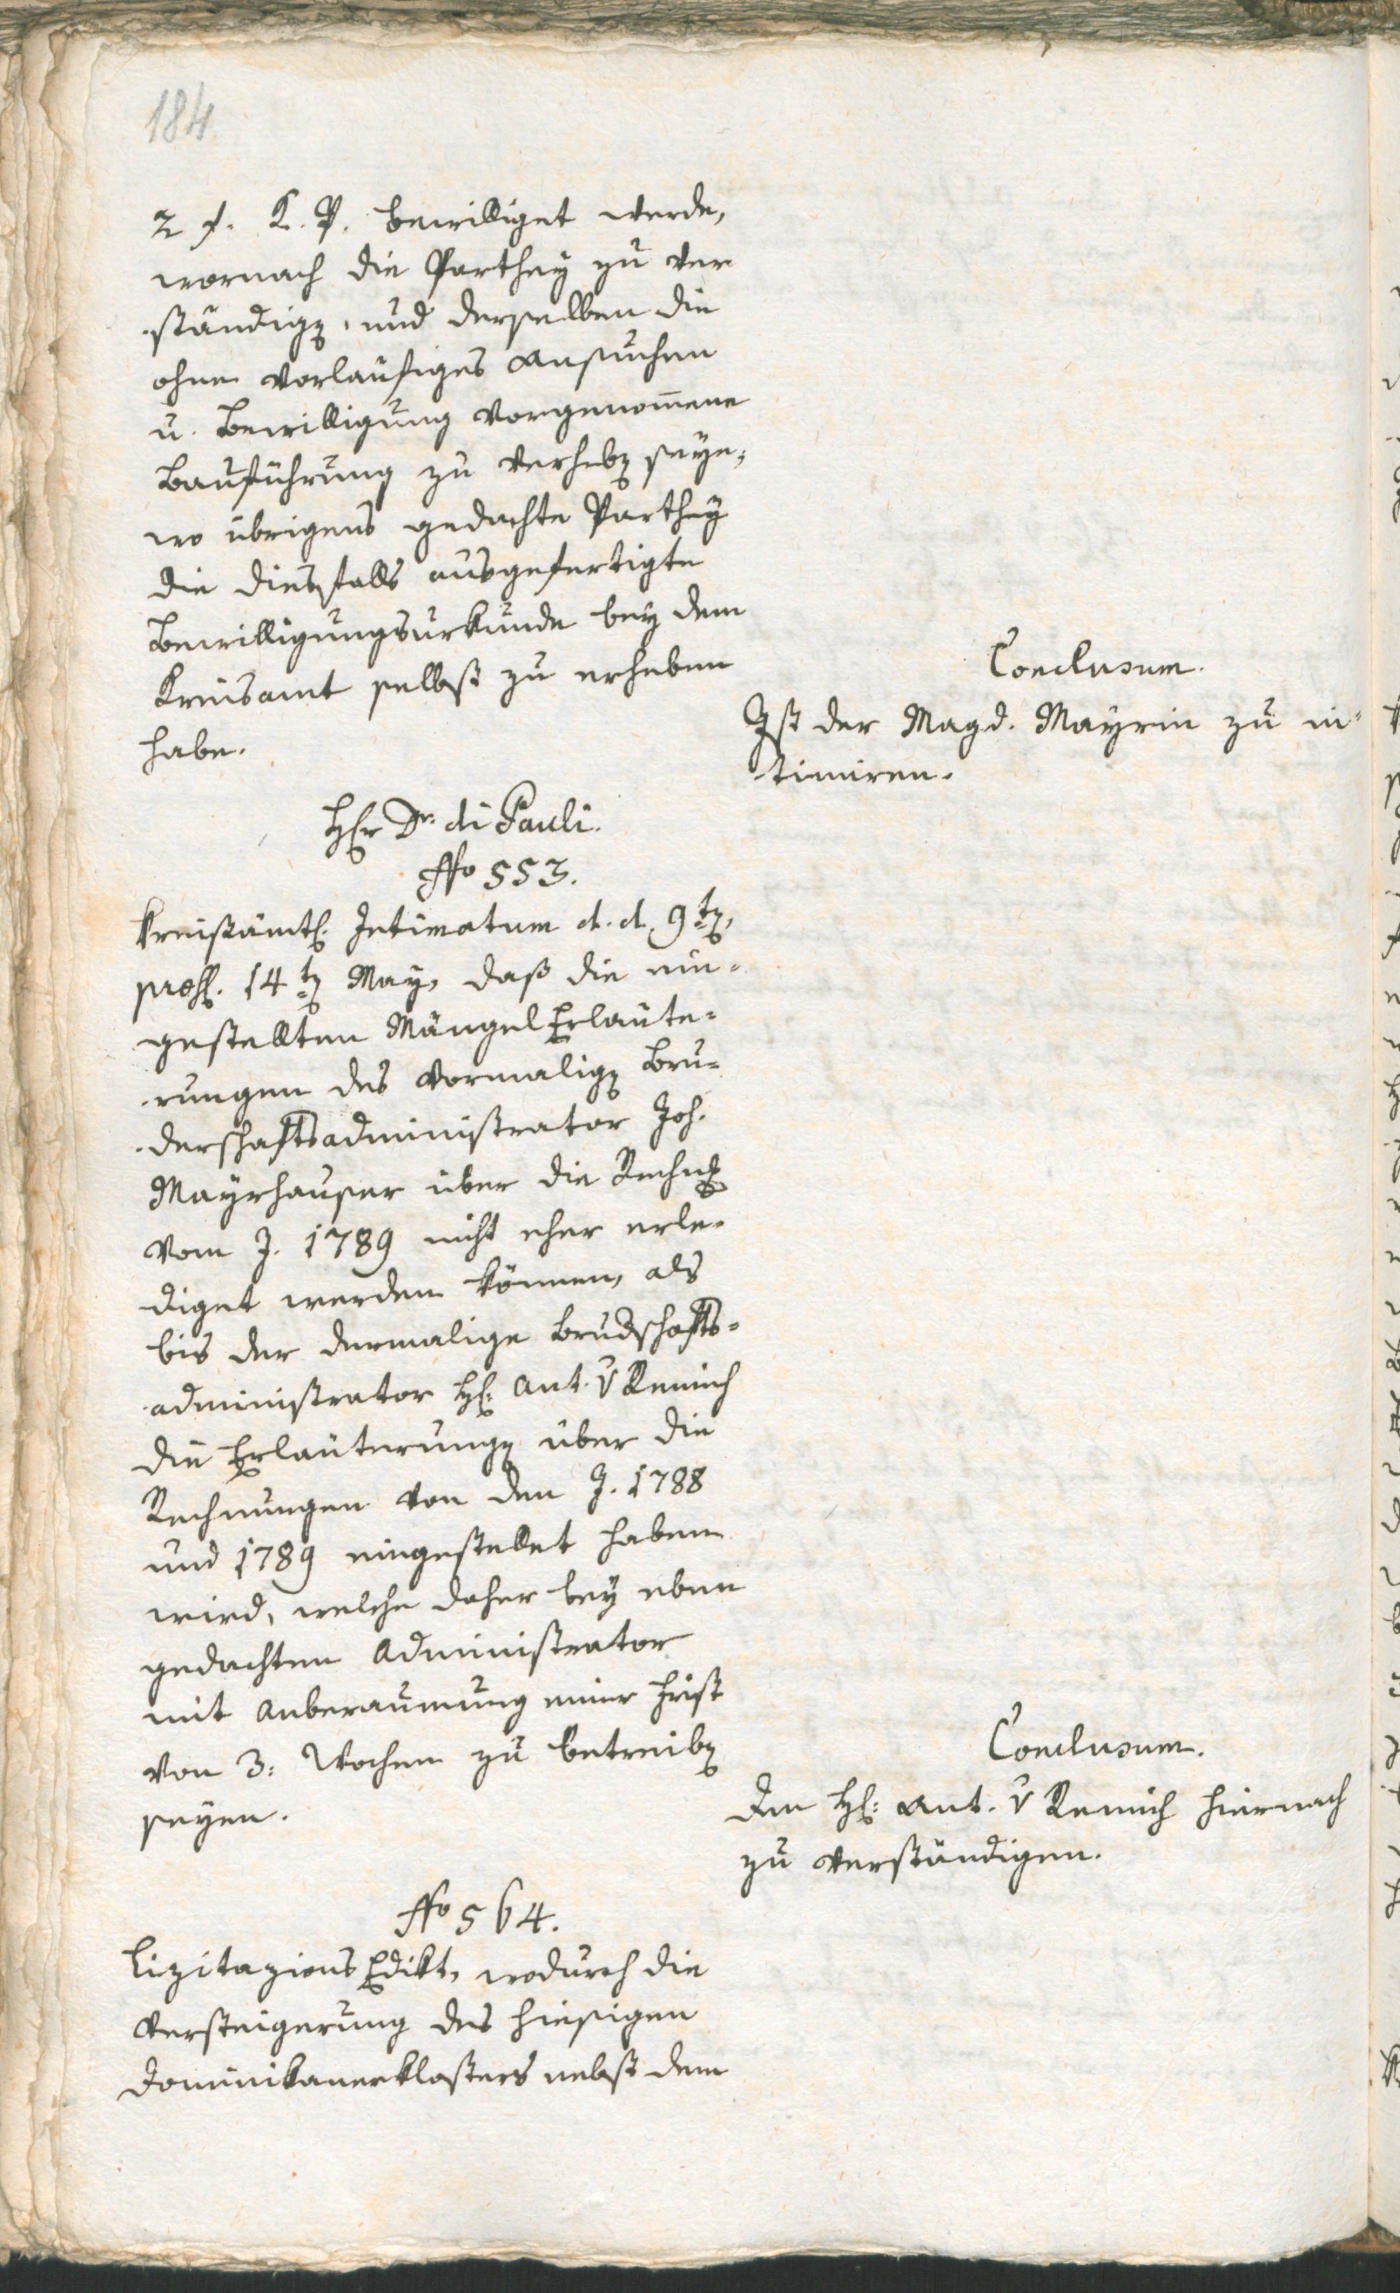 184
2 f. K. P. bewilliget werde,
wornach die Parthey zu ver
ständig, und derselben die
ohne vorläufiges Ansuchen
u. Bewilligung vorgenommene
Bauführung zu verheb seye,
wo übrigens gedachte Parthey
die diesfalls ausgefertigte
Bewilligungsurkunde bey dem
Kreisamt selbst zu erheben
habe.
Conclusum.
Ist der Magd. Mayrin zu in-
timiren.
Hr Dr. di Pauli.
No 553.
Kreisämtl. Intimatum d. d. 9t,
præs. 14t May, daß die ein-
gestellten Mängel Erläute-
rungen des vormalig Bru-
derschaftsadministrator Joh.
Mayrhauser über die Rechng
vom J. 1789 nicht eher erle-
diget werden können, als
bis der dermalige Brudschafts-
administrator H: Ant. v Remich
die Erläuterung über die
Rechnungen von den J. 1788
und 1789 eingestellet haben
wird, welche daher bey eben
gedachten Administrator
mit Anberaumung einer Frist
von 3: Wochen zu betreib
seyen.
Conclusum.
Den H: Ant. v Remich hiernach
zu verständigen.
No 564.
Lizitazions Edikt, wodurch die
Versteigerung des hiesigen
Dominikanerklosters nebst dem